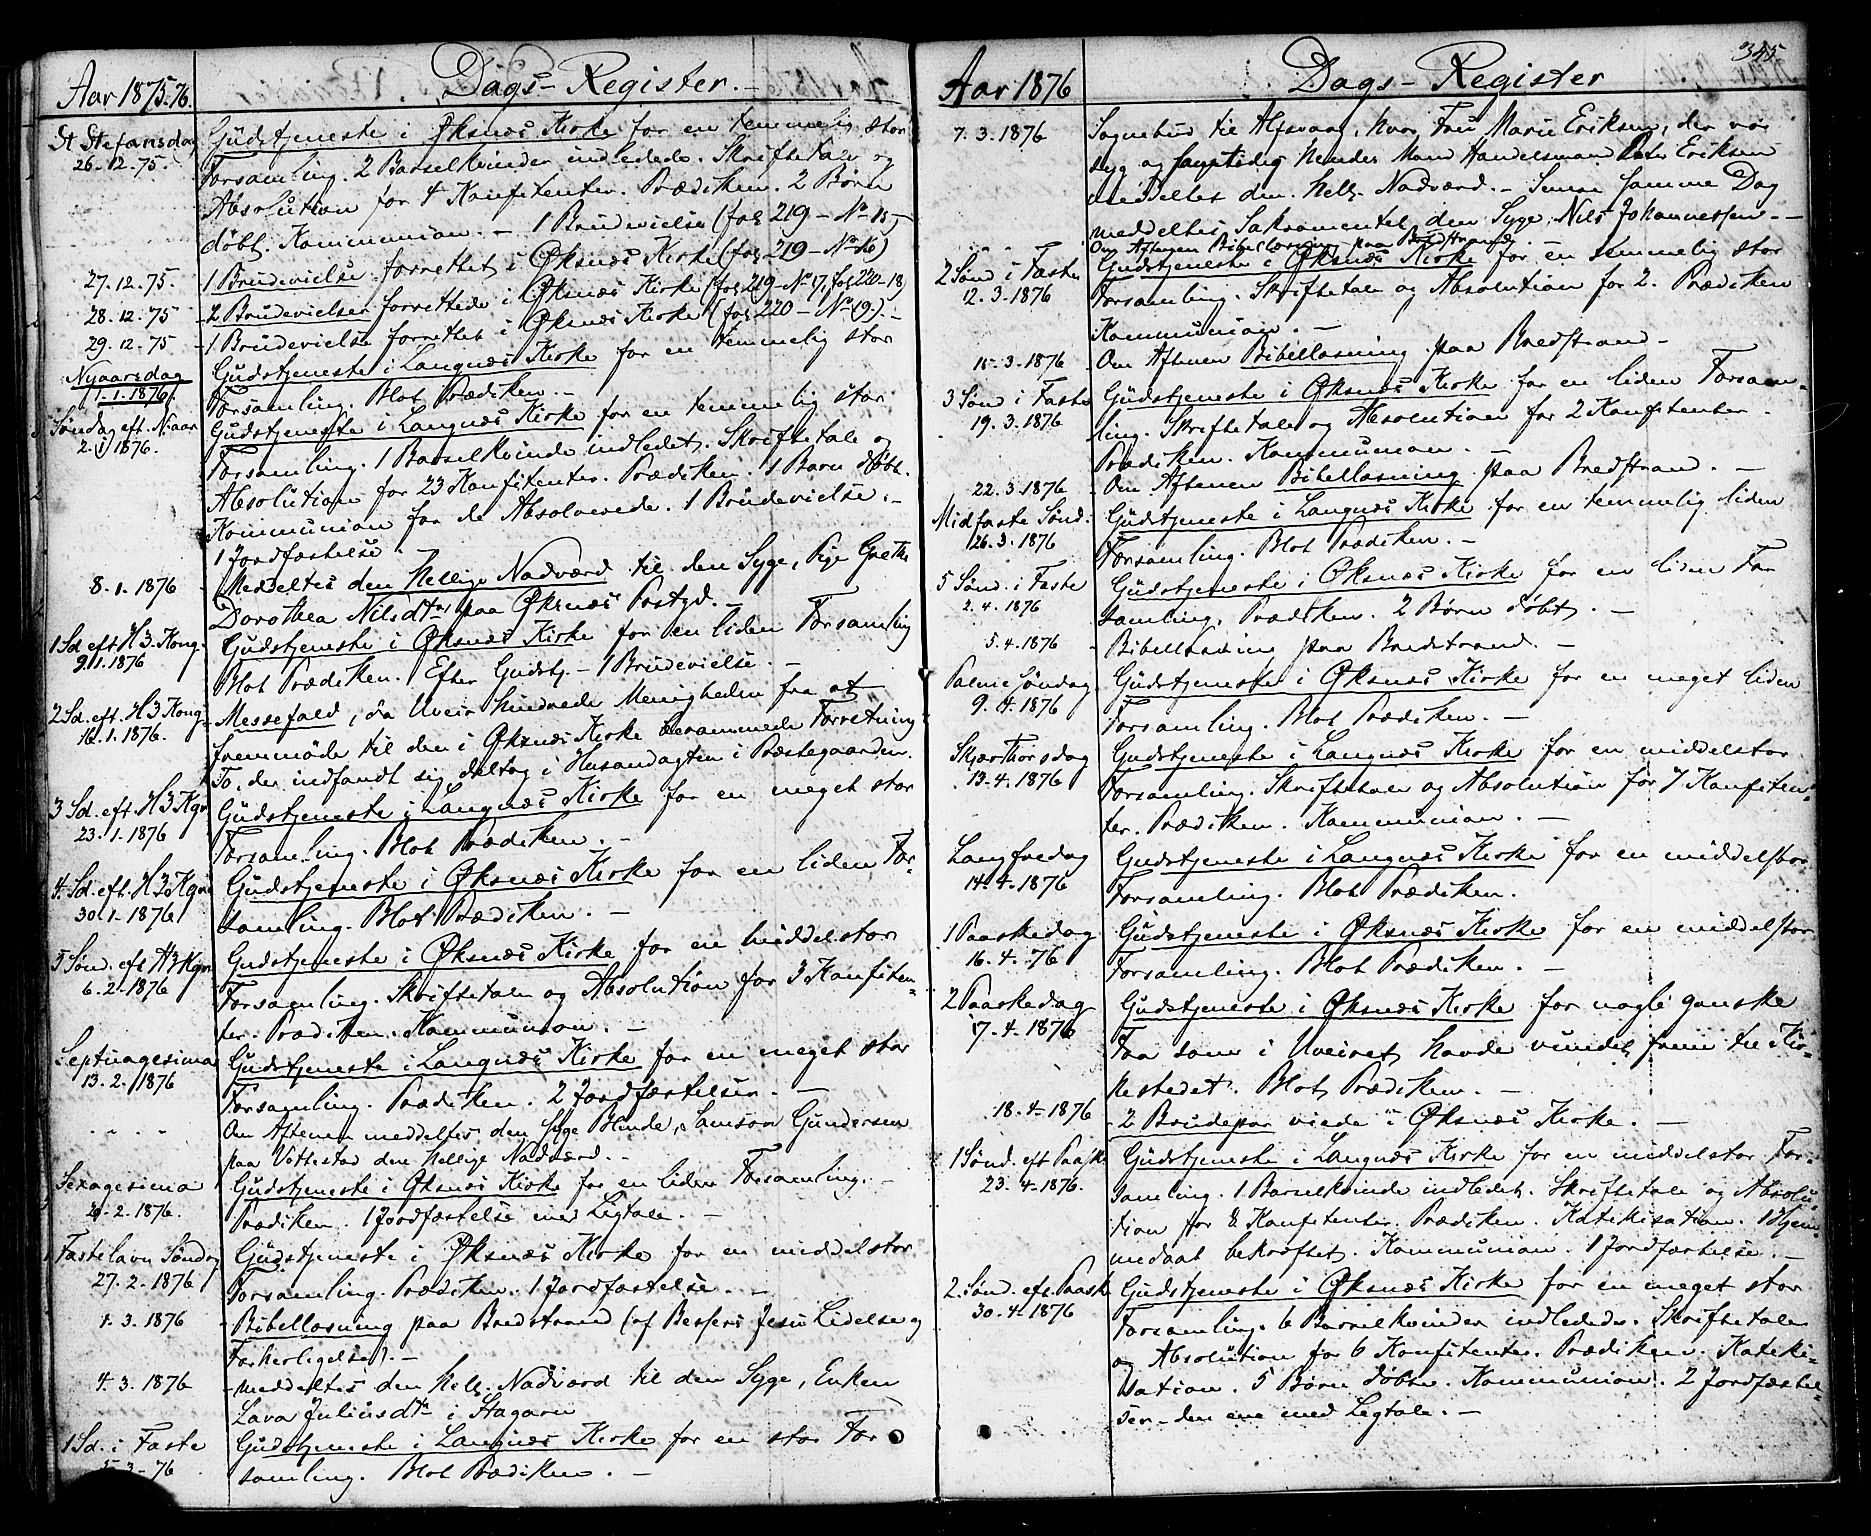 Aar 1875-76.
Dags-Register.-
St Stefansdag
26.12.75.
Gudstjeneste i Øksnæs Kirke for en temmelig stor
Forsamling. 2 Barselkvinder indledede. Skriftetale og
Absolution for 4 Konfitenter. Prædiken. 2 Børn
døbt. Kommunion. - 1 Brudevielse (fol 219 - No 15
27.12.75.
1 Brudevielse forrettet i Øksnæs Kirke (fol 219 - No 16)
28.12.75
- 2 Brudevielser forrettede i Øksnæs Kirke (fol 219 - No 17, fol 220-18)
29.12.75
- 1 Brudevielse forrettet i Øksnæs Kirke (fol 220 - No 19). -
Nyaarsdag
1.1.1876.
Gudstjeneste i Langnæs Kirke for en temmelig stor
Forsamling. Blot Prædiken. -
Søndag eft. Nyaar
2.1.1876.
Gudstjeneste i Langnæs Kirke for en temmelig stor
Forsamling. 1 Barselkvinde indledet. Skriftetale og
Absolution for 23 Konfitenter. Prædiken. 1 Barn døbt.
Kommunion for de Absolverede. 1 Brudevielse. -
1 Jordfæstelse.
8.1.1876
- Meddeltes den hellige Nadværd til den Syge, Pige Grethe
Dorothea Nilsdtr paa Øksnæs Præstgd. -
1 Sd eft H 3 Kong.
9.1.1876
Gudstjeneste i Øksnæs Kirke for en liden Forsamling
Blot Prædiken. Efter Gudstj. - 1 Brudevielse. -
2 Sd. eft. H 3 Kong.
16.1.1876.
Messefald, da Uveir hindrede Menigheden fra at
fremmøde til den i Øksnæs Kirke berammede Forretning
To, der indfandt sig, deltog i Husandagten i Præstegaarden.
3 Sd. eft. H 3 Kgr
23.1.1876
Gudstjeneste i Langnæs Kirke for en meget stor
Forsamling. Blot Prædiken. -
4. Sd. eft. H 3 Kgr
30.1.1876
Gudstjeneste i Øksnæs Kirke for en liden For-
samling. Blot Prædiken. -
5 Sønd. eft H 3 Kgr
6.2.1876
Gudstjeneste i Øksnæs Kirke for en middelstor
Forsamling. Skriftetale og Absolution for 3 Konfiten-
ter. Prædiken. Kommunion. -
Septuagesima
13.2.1876
Gudstjeneste i Langnæs Kirke for en meget stor
Forsamling. Prædiken. 2 Jordfæstelser. -
Om Aftenen meddeltes den syge Blinde, Samson Gundersen
paa Vottestad den hellige Nadværd. -
Sexagesima
20.2.1876.
Gudstjeneste i Øksnæs Kirke for en liden Forsamling. -
Prædiken. 1 Jordfæstelse med Ligtale. -
Fastelavn Søndag
27.2.1876
Gudstjeneste i Øksnæs Kirke for en middelstor
Forsamling. Prædiken. 1 Jordfæstelse. -
1.3.1876
- Bibellæsning paa Bredstrand (af Bessers Jesu Lidelse og
Forherligelse). -
4.3.1876
- meddeltes den hell. Nadværd til den Syge, Enken
Lava Juliusdtr i Stagarn
1 Sd. i Faste
5.3-76
Gudstjeneste i Langnæs Kirke for en stor For
samling. Blot Prædiken. -
345.
Aar 1876
Dags-Register
7.3.1876
Sognebud til Alfsvaag, hvor Fru Marie Eriksen, der var
syg og samtidig hendes Mand Handelsmand Peter Eriksen
meddeltes den hell. Nadværd. - Senere samme Dag
meddeltes Sakramentet den Syge, Nils Johannessen. -
Om Aftenen Bibellæsning paa Bredstrand.
2 Sønd i Faste
12.3.1876
Gudstjeneste i Øksnæs Kirke for en temmelig stor
Forsamling. Skriftetale og Absolution for 2. Prædiken
Kommunion. -
15.3.1876
Om Aftenen Bibellæsning paa Bredstrand -
3 Sønd i Faste
19.3.1876
Gudstjeneste i Øksnæs Kirke for en liden Forsam-
ling. Skriftetale og Absolution for 2 Konfitenter.
Prædiken. Kommunion. -
22.3.1876
- Om Aftenen Bibellæsning paa Bredstrand. -
Midfaste Sønd.
26.3.1876
Gudstjeneste i Langnæs Kirke for en temmelig liden
Forsamling. Blot Prædiken. -
5 Sønd. i Faste
2.4.1876
Gudstjeneste i Øksnæs Kirke for en liden For
samling. Prædiken. 2 Børn døbt. -
5.4.1876
- Bibellæsning paa Bredstrand. -
Palme Søndag
9.4.1876
Gudstjeneste i Øksnæs Kirke for en meget liden
Forsamling. Blot Prædiken. -
Skjærthorsdag
13.4.1876
Gudstjeneste i Langnæs Kirke for en middelstor
Forsamling. Skriftetale og Absolution for 7 Konfiten-
ter. Prædiken. Kommunion. -
Langfredag
14.4.1876
Gudstjeneste i Langnæs Kirke for en middelstor
Forsamling. Blot Prædiken.
1 Paaskedag
16.4.76
Gudstjeneste i Øksnæs Kirke for en middelstor
Forsamling. Blot Prædiken. -
2 Paaskedag
17.4.1876
Gudstjeneste i Øksnæs Kirke for nogle ganske
Faa som i Uveiret havde vundet frem til Kir-
kestedet. Blot Prædiken. -
18.4.1876
- 2 Brudepar viede i Øksnæs Kirke. -
1 Sønd. eft Paaske
23.4.1876.
Gudstjeneste i Langnæs Kirke for en middelstor For-
samling. 1 Barselkvinde indledet. Skriftetale og Absolu
tion for 8 Konfitenter. Prædiken. Katekisation. 1 Hjem
medaab bekræftet. Kommunion. 1 Jordfæstelse. -
2. Sønd. eft. Paaske
30.4.1876
Gudstjeneste i Øksnæs Kirke for en meget stor
Forsamling. 6 Barselkvinder indledede. Skriftetale
og Absolution for 6 Konfitenter. Prædiken. Kateki-
sation. 5 Børn døbte. Kommunion. 2 Jordfæstel-
ser - den ene med Ligtale. -